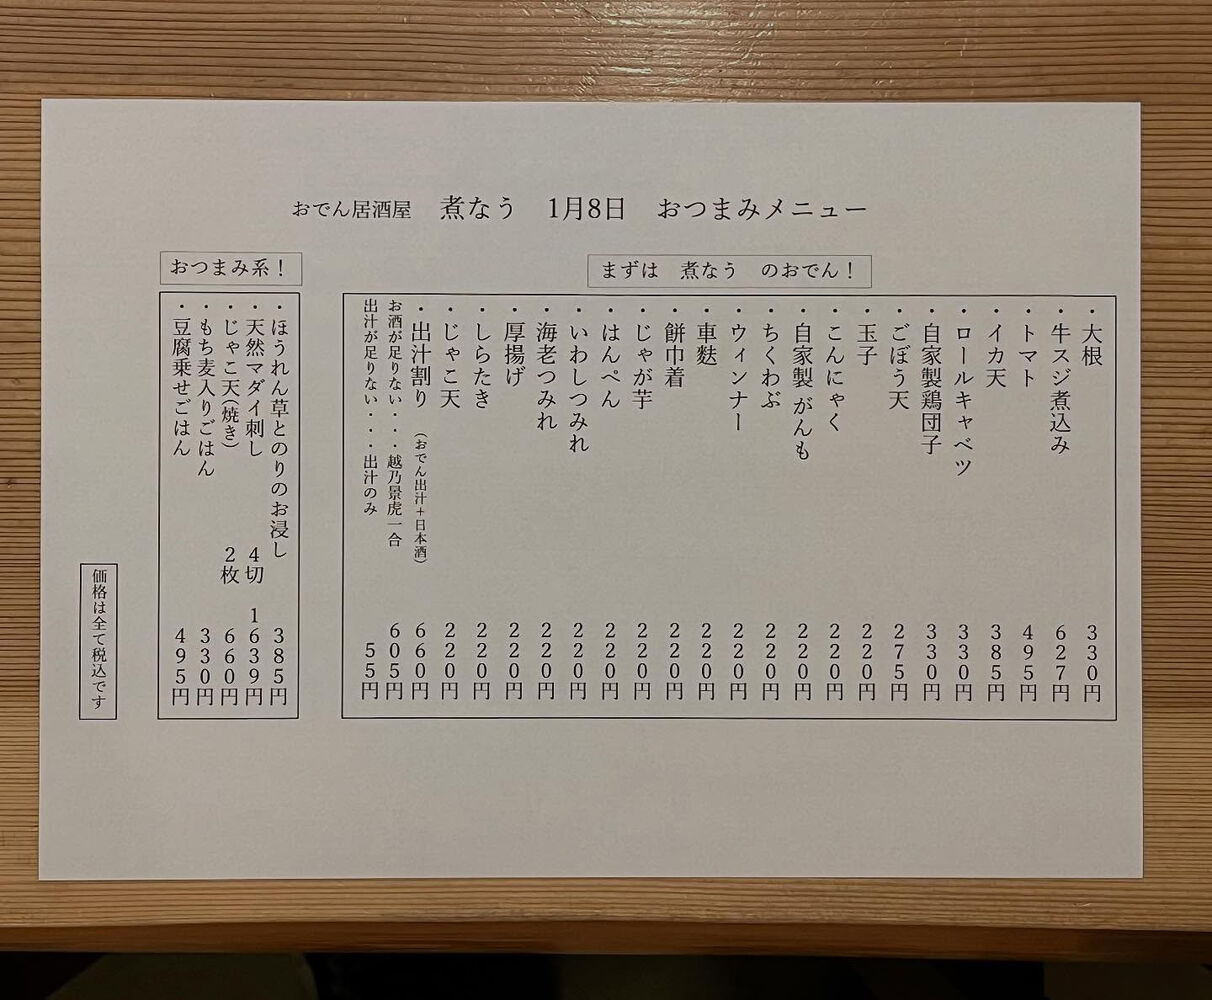 おでん居酒屋　煮なう　1月8日　おつまみメニュー
まずは　煮なう　のおでん！
・大根　330円
・牛スジ煮込み　627円
・トマト　495円
・イカ天　385円
・ロールキャベツ　330円
・自家製鶏団子　330円
・ごぼう天　275円
・玉子　220円
・こんにゃく　220円
・自家製がんも　220円
・ちくわぶ　220円
・ウィンナー　220円
・車麩　220円
・餅巾着　220円
・じゃが芋　220円
・はんぺん　220円
・いわしつみれ　220円
・海老つみれ　220円
・厚揚げ　220円
・しらたき　220円
・じゃこ天　220円
・出汁割り　（おでん出汁＋日本酒）　660円
お酒が足りない・・・越乃景虎一合　605円
出汁が足りない・・・出汁のみ　55円
おつまみ系！
・ほうれん草とのりのお浸し　385円
・天然マダイ刺し　4切　1639円
・じゃこ天（焼き）　2枚　660円
・もち麦入りごはん　330円
・豆腐乗せごはん　495円
価格は全て税込です